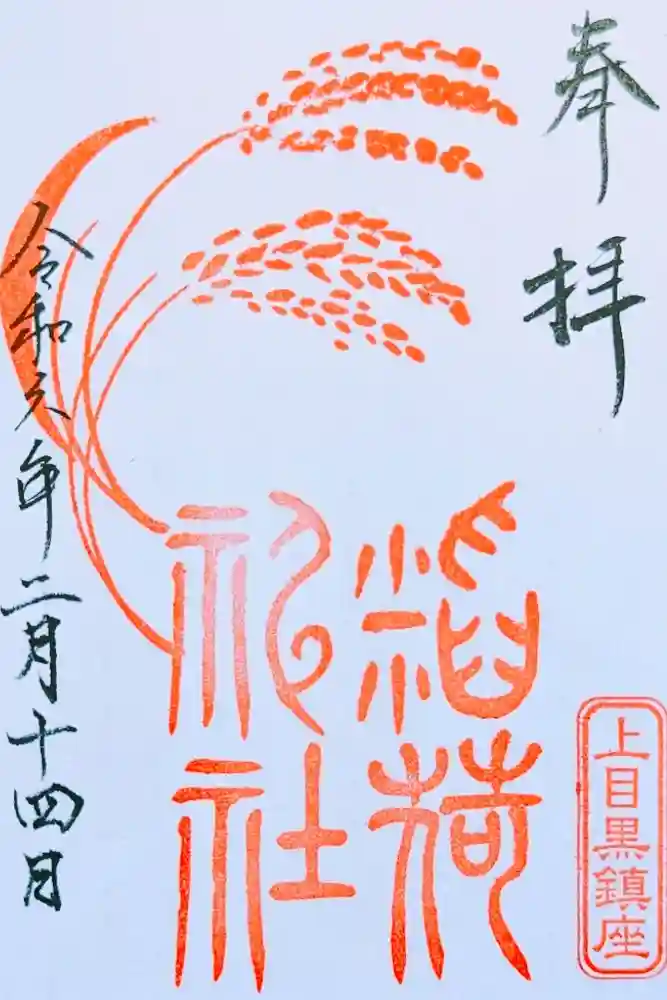 奉拝
上目黒鎮座
稲荷
神社
令和六年二月十四日